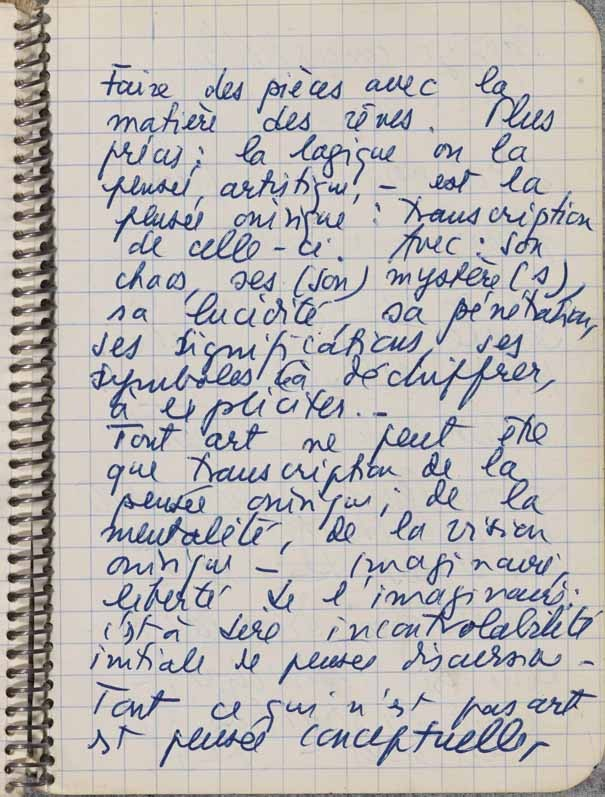 Faire des pièces avec la
matière des rêves. Plus
précis : la logique ou la
pensée artistique, – est la
pensée onirique : Transcription
de celle-ci. Avec : son
chaos, ses (son) mystère(s),
sa lucidité, sa pénétration,
ses significations, ses
symboles (à déchiffrer,
à expliciter. –
Tout art ne peut être
que transcription de la
pensée onirique ; de la
mentalité, de la vision
onirique – imaginaire,
liberté de l'imaginaire.
c'est à dire incontrolabilité
initiale de pensée discursive –
Tout ce qui n'est pas art
est pensée conceptuelle,